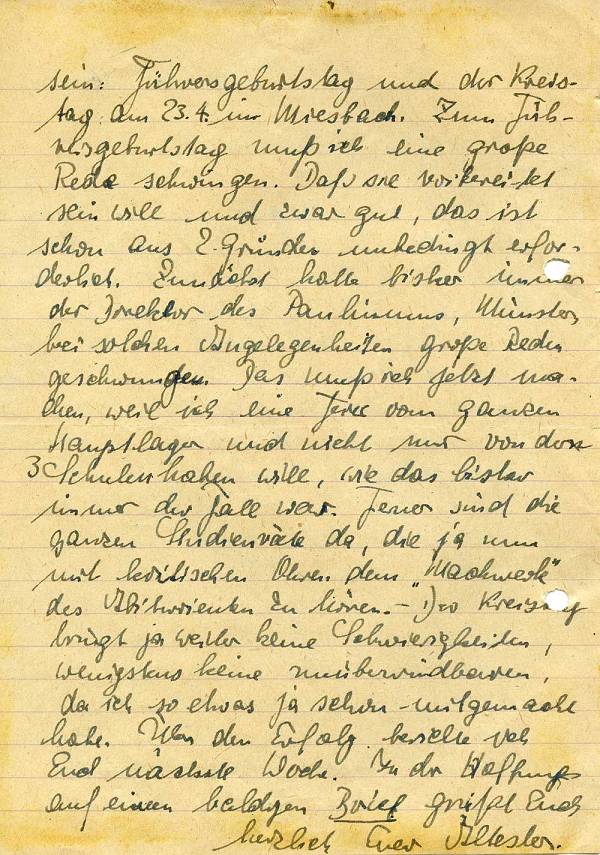 sein: Führersgeburtstag und der Kreis-
tag am 23.4. in Miesbach. Zum Füh-
rersgeburtstag muß ich eine große
Rede schwingen. Daß sie vorbereitet
sein will und zwar gut, das ist
schon aus 2 Gründen unbedingt erfor-
derlich. Zunächst hatte bisher immer
der Direktor des Paulinums, Münster,
bei solchen Angelegenheiten große Reden
geschwungen. Das muß ich jetzt ma-
chen, weil ich eine Feier vom ganzen
Hauptlager und nicht nur von den
3 Schulen haben will, wie das bisher
immer der Fall war. Ferner sind die
ganzen Studienräte da, die ja nun
mit kritischen Ohren dem "Machwerk"
des Abiturienten zu hören. – Der Kreistag
bringt ja weiter keine Schwierigkeiten,
wenigstens keine unüberwindbaren,
da ich so etwas ja schon mitgemacht
habe. Über den Erfolg berichte ich
End nächste Woche. In der Hoffnung
auf einen baldigen Brief grüßt Euch
herzlich Euer Ältester.